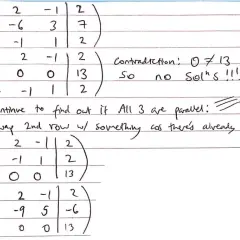 2 -1 | 2
-6 3 | 7
-1 1 | 2
2 -1 | 2
0 0 | 13
-1 1 | 2
Contradiction: 0 ≠ 13
So no Solⁿs !!!
to find out if All 3 are parallel:
2nd row w/ something cos there's already
2 -1 | 2
-1 1 | 2
0 0 | 13
2 -1 | 2
-9 5 | -6
0 0 | 13